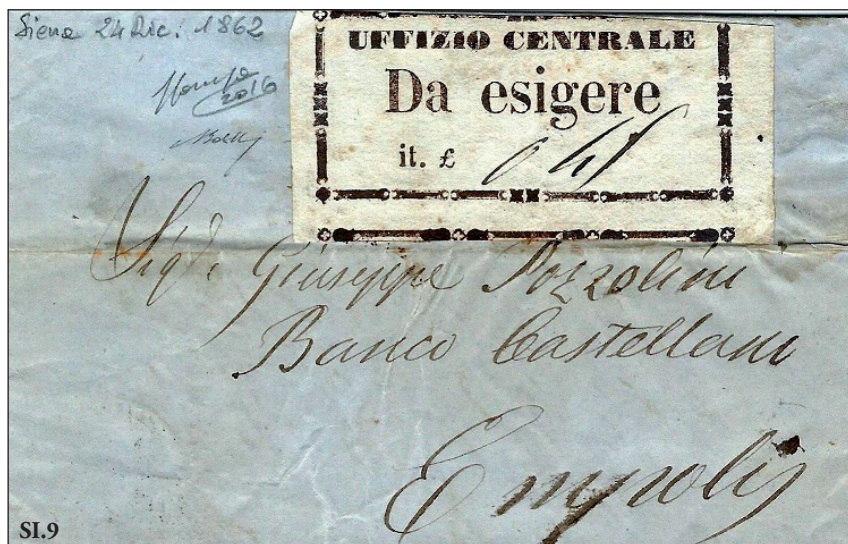 Siena 24 Dic: 1862
2016
UFFIZIO CENTRALE
Da esigere
it. £
Sig. Giuseppe Pozzolini
Banco Castellani
Empoli
SI.9